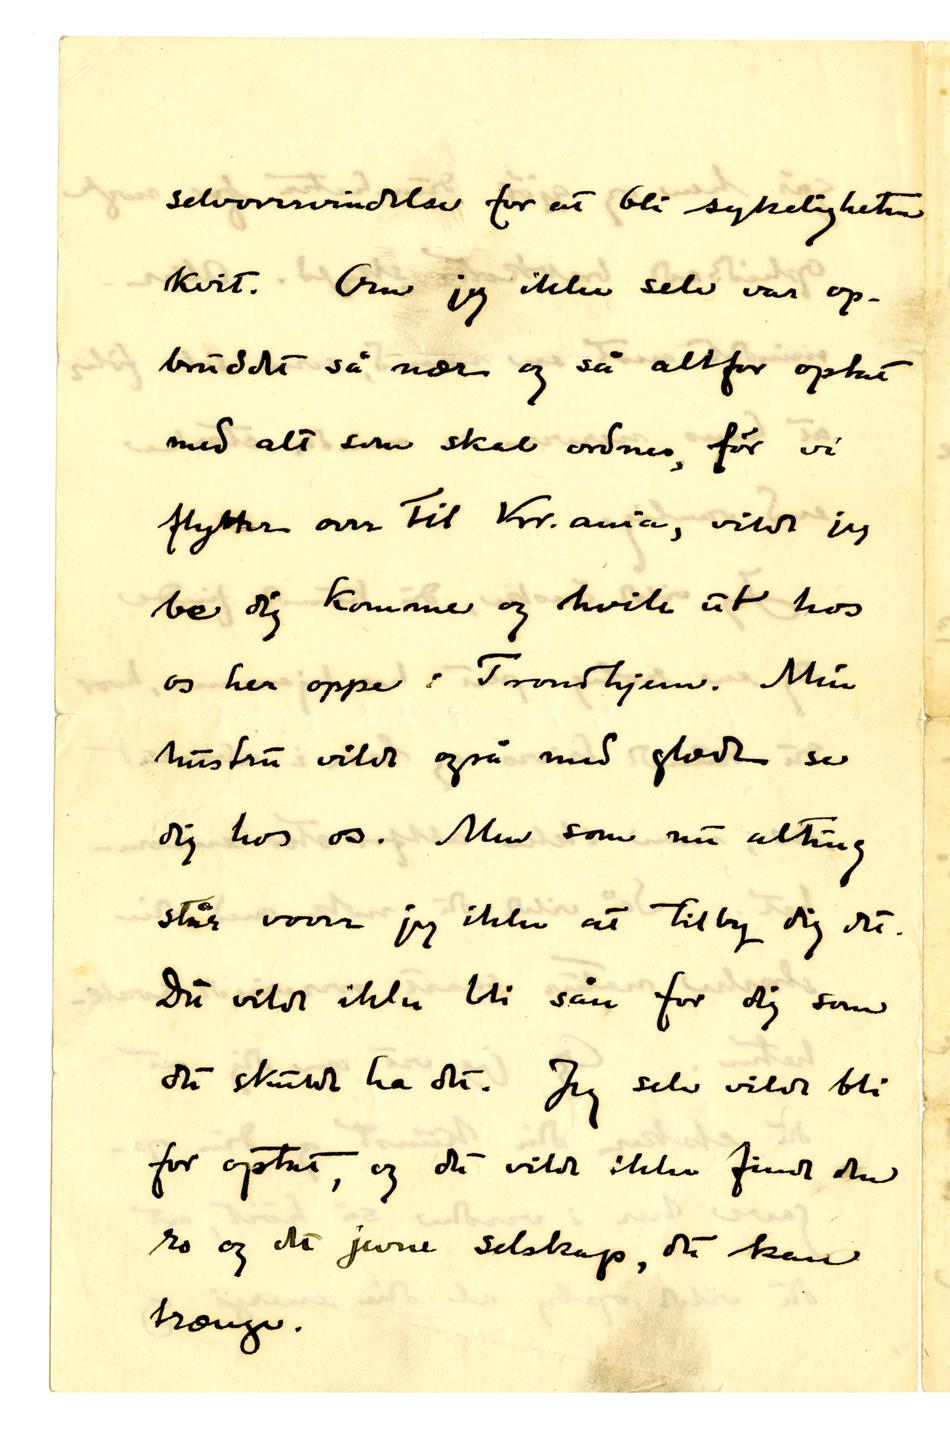 selvovervindelse for at bli sykeligheten
kvit. Om jeg ikke selv var op-
bruddet så nær og så altfor optat
med alt som skal ordnes, før vi
flytter over til Kr.ania, vilde jeg
be dig komme og hvile ut hos
os her oppe i Trondhjem. Min
hustru vilde også med glæde se
dig hos os. Men som nu alting
står vover jeg ikke at tilby dig det.
Du vilde ikke bli sån for dig som
du skulde ha det. Jeg selv vilde bli
for optat, og du vilde ikke finde den
ro og det jevne selskap, du kan
trænge.